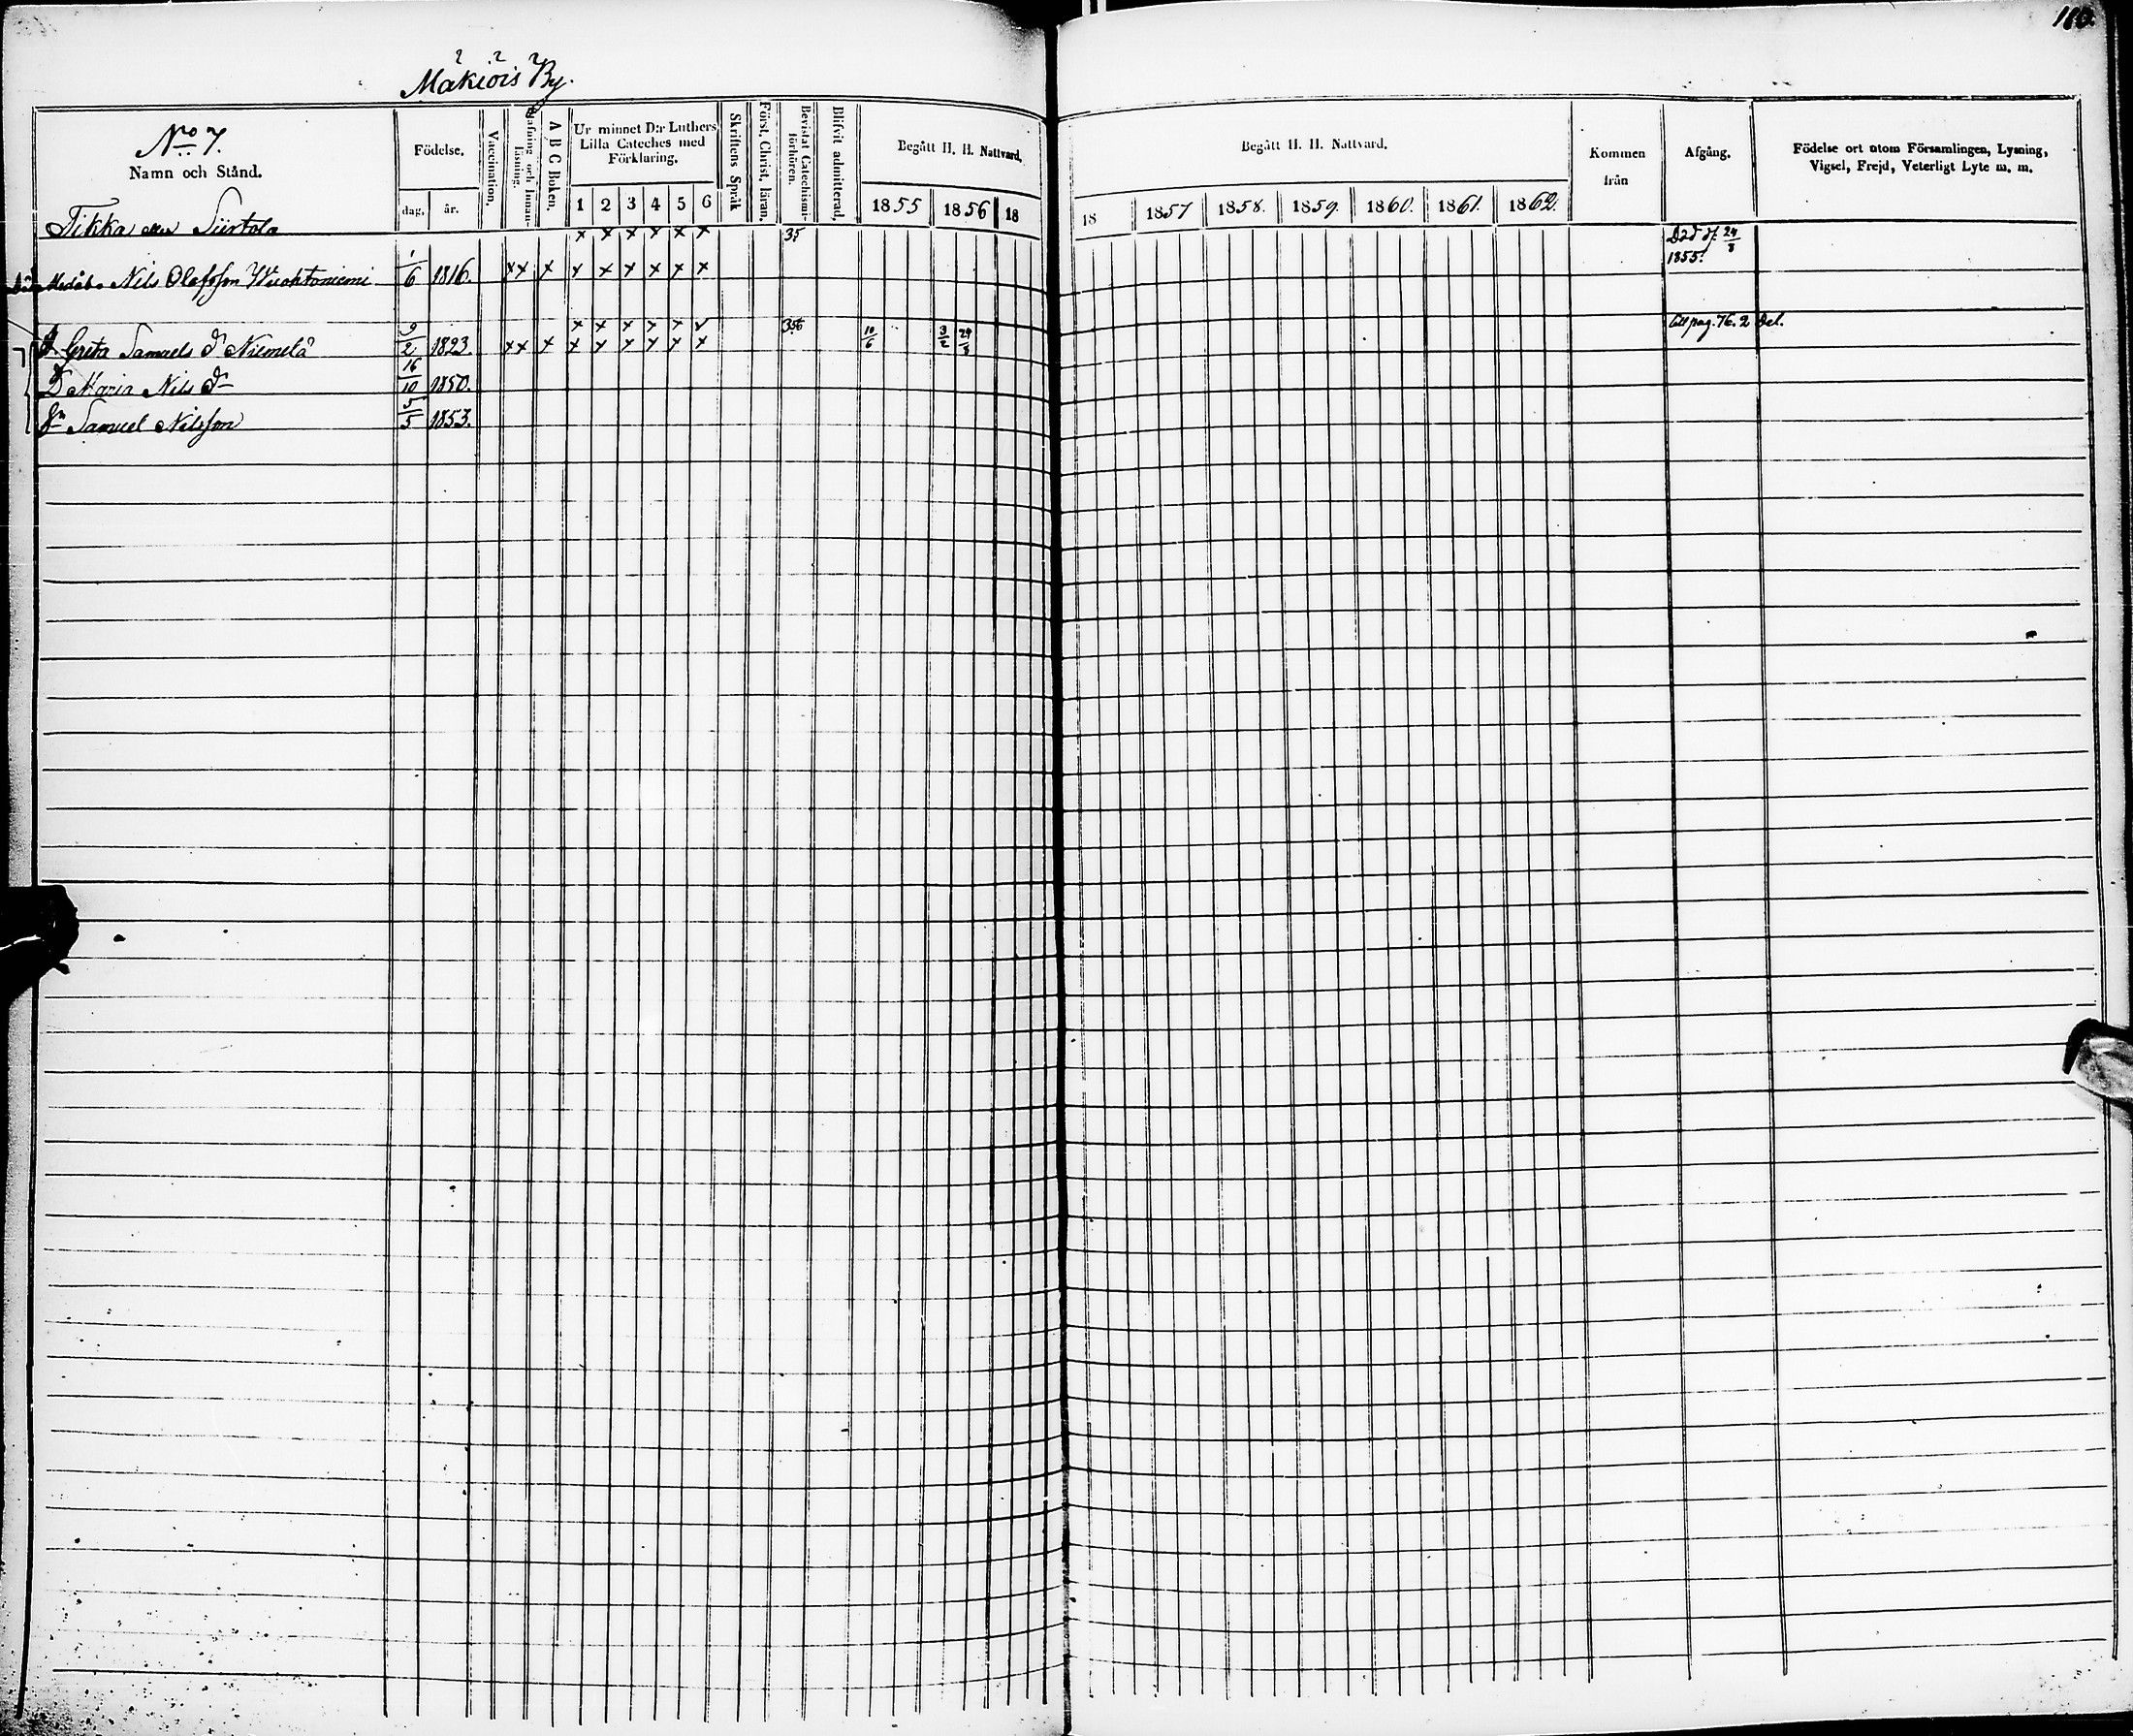 180.
Mäkiöis By.
No 7.
Namn och Stånd.
Födelse.
dag. år.
Vaccination.
Stafning och Innan-läsning.
A B C Boken.
Ur minnet D:r Luthers Lilla Cateches med Förklaring.
1 2 3 4 5 6
Skriftens Språk
Först. Christ. läran.
Bevistat Catechismi-förhören.
Blifvit admitterad.
Begått H. H. Nattvard.
1855 1856 18
Begått H. H. Nattvard.
18 1857 1858. 1859. 1860. 1861. 1862.
Kommen från
Afgång.
Födelse ort utom Församlingen, Lysning, Vigsel, Frejd, Veterligt Lyte m. m.
Tikka eller Siirtola x x x x x x 35 Död d. 24/8
1855.
Nils Olofsson Wuohtoniemi 1/6 1816. x x x x x x x x x
x x x x x x 356 till pag. 76. 2 Del.
Greta Samuels dr Niemelä 9/2 1823. x x x x x x x x x 10/6 3/2 24/8
D Maria Nils dr 16/10 1850.
Sn Samuel Nilsson 5/5 1853.